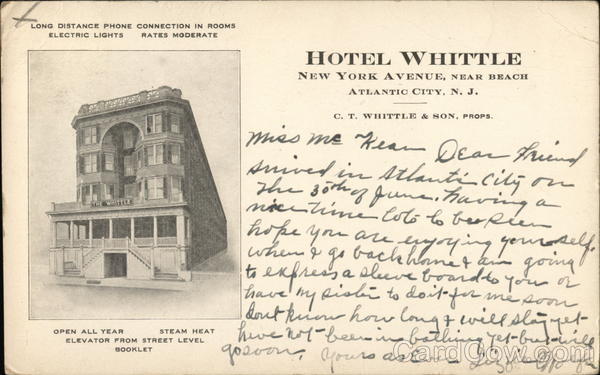 LONG DISTANCE PHONE CONNECTION IN ROOMS
ELECTRIC LIGHTS RATES MODERATE
THE WHITTLE
OPEN ALL YEAR STEAM HEAT
ELEVATOR FROM STREET LEVEL
BOOKLET
HOTEL WHITTLE
NEW YORK AVENUE, NEAR BEACH
ATLANTIC CITY, N. J.
C. T. WHITTLE & SON, PROPS.
Miss Mc Kean Dear Friend
arrived in Atlantic City on
the 30th of June. having a
nice time lots to bee seen
hope you are enjoying yourself.
when I go back home I am going
to express a sleeve board to you or
have my sister to do it for me soon
dont know how long I will stay yet
have not been in bathing yet but will
go soon, Yours as
CardCow.com